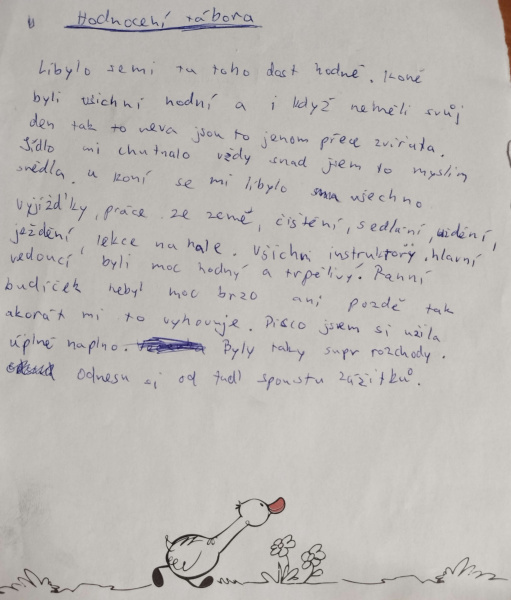 Hodnocení tábora
Libylo se mi tu toho dost hodně. Koně
byli všichni hodní a i když neměli svůj
den tak to neva jsou to jenom přece zvířata.
Jídlo mi chutnalo vždy snad jsem to myslim
snědla. u koní se mi libylo všechno
vyjížďky, práce ze země, čištění, sedlání,
ježdění, lekce na hale. Všichni instruktoři, hlavní
vedoucí byli moc hodný a trpělivý. Ranní
budíček nebyl moc brzo ani pozdě tak
akorát mi to vyhovuje. Disco jsem si užila
úplně naplno. Byly taky supr rozchody.
Odnesu si od tudl spoustu zážitků.